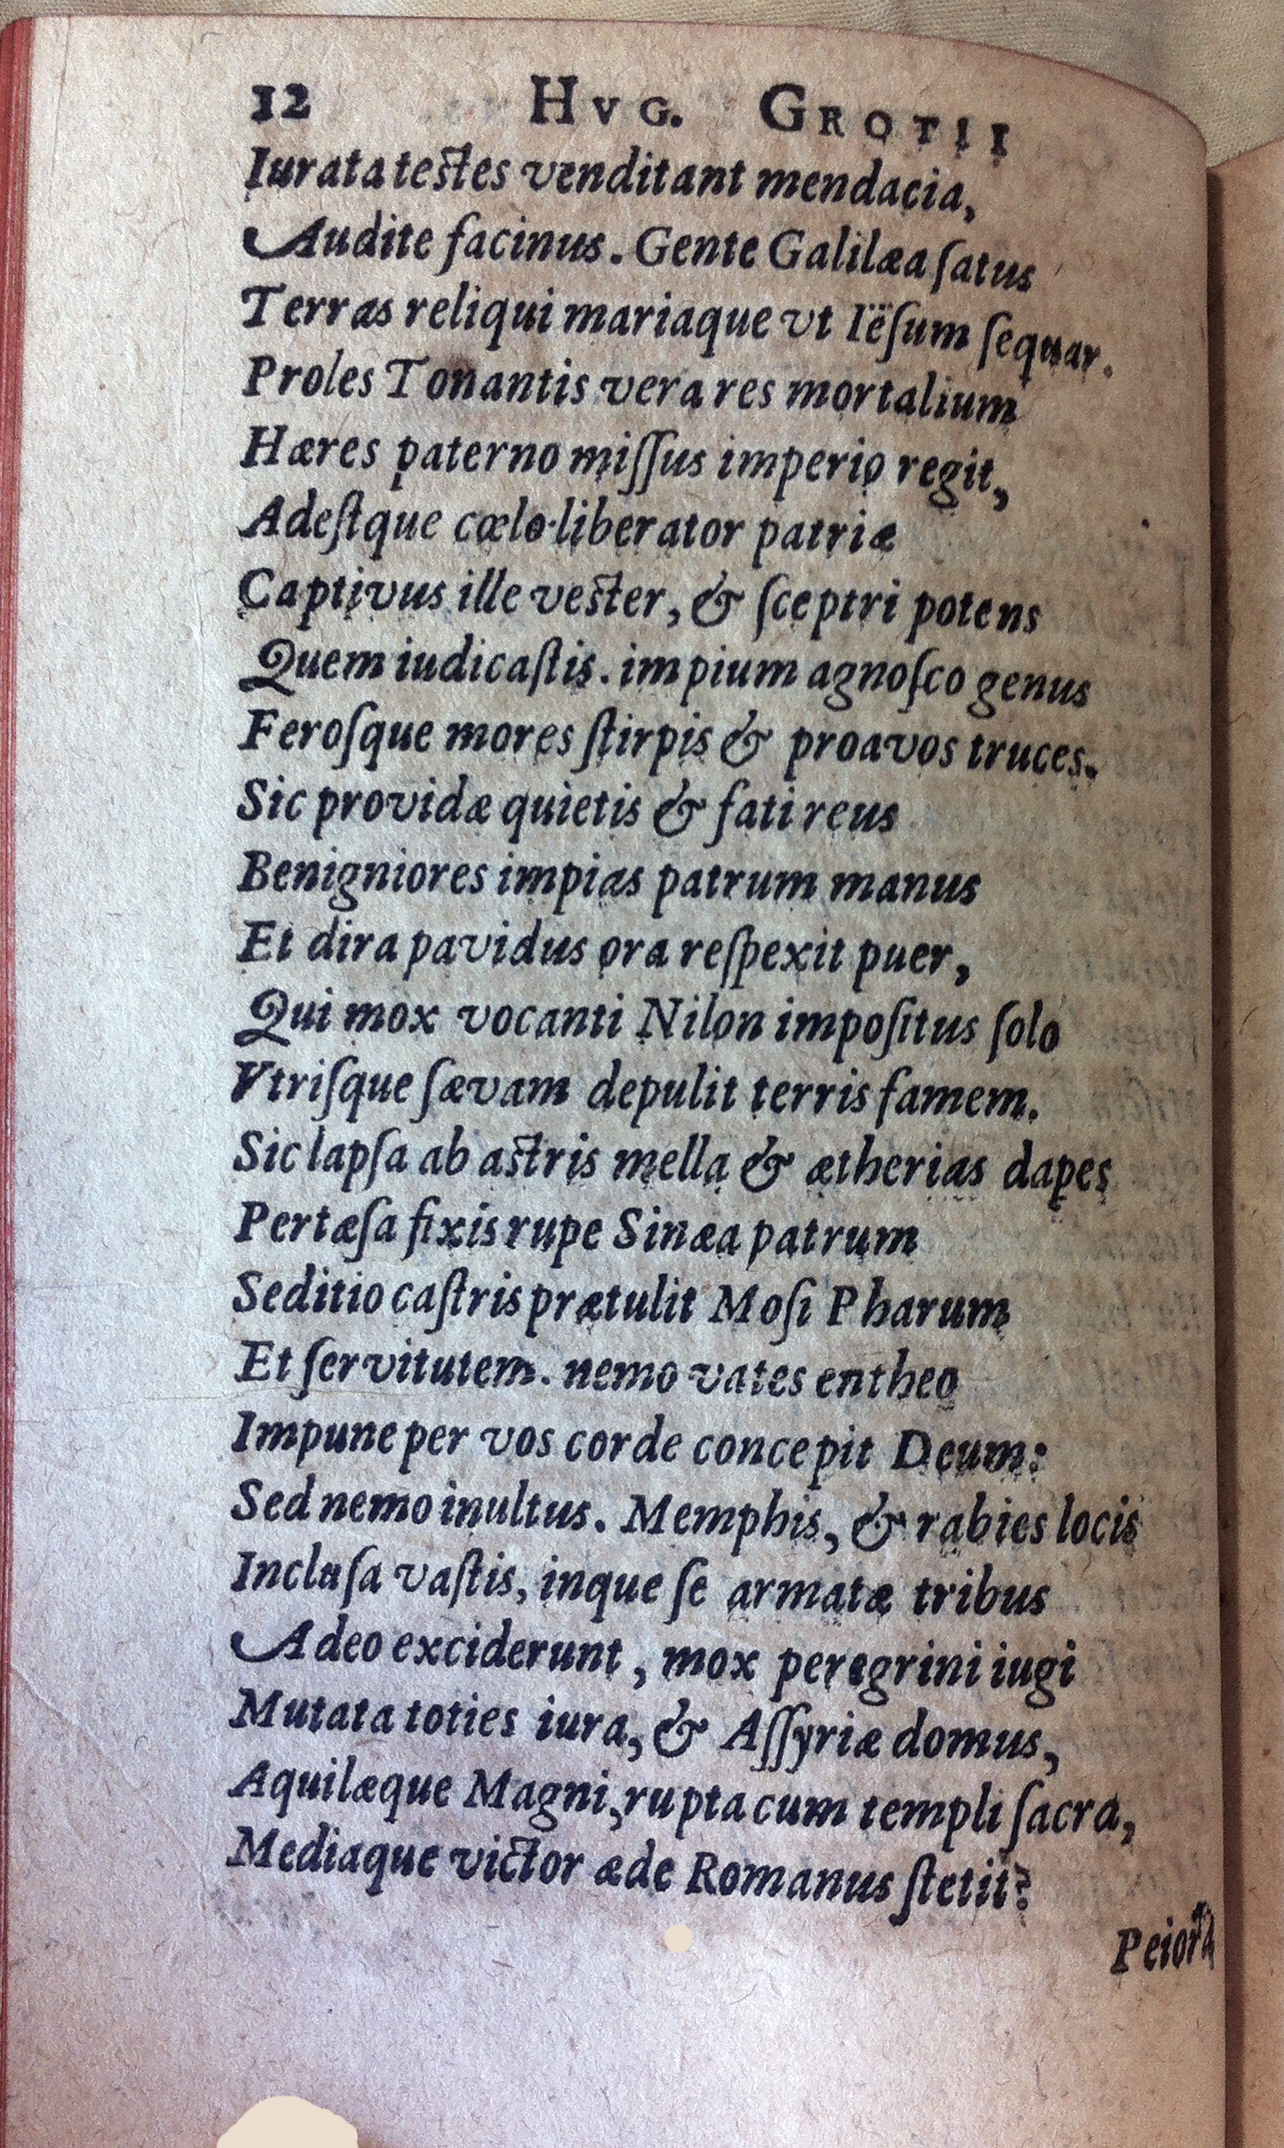 12 HVG. GROTII
Iurata testes venditant mendacia,
Audite facinus. Gente Galilæa ſatus
Terras reliqui mariaque vt Iëſum ſequar.
Proles Tonantis vera res mortalium
Hæres paterno miſſus imperio regit,
Adeſtque cœlo liberator patriæ
Captivus ille vester, & ſceptri potens
Quem iudicaſtis. impium agnoſco genus
Feroſque mores ſtirpis & proavos truces.
Sic providæ quietis & fati reus
Benigniores impias patrum manus
Et dira pavidus ora reſpexit puer,
Qui mox vocanti Nilon impoſitus ſolo
Vtriſque ſævam depulit terris famem.
Sic lapſa ab astris mella & ætherias dapes
Pertæſa fixis rupe Sinæa patrum
Seditio caſtris prætulit Moſi Pharum
Et ſervitutem. nemo vates entheo
Impune per vos corde concepit Deum:
Sed nemo inultus. Memphis, & rabies locis
Incluſa vaſtis, inque ſe armatæ tribus
Adeo exciderunt, mox peregrini iugi
Mutata toties iura, & Aſſyriæ domus,
Aquilæque Magni, rupta cum templi ſacra,
Mediaque victor æde Romanus ſtetit?
Peiora